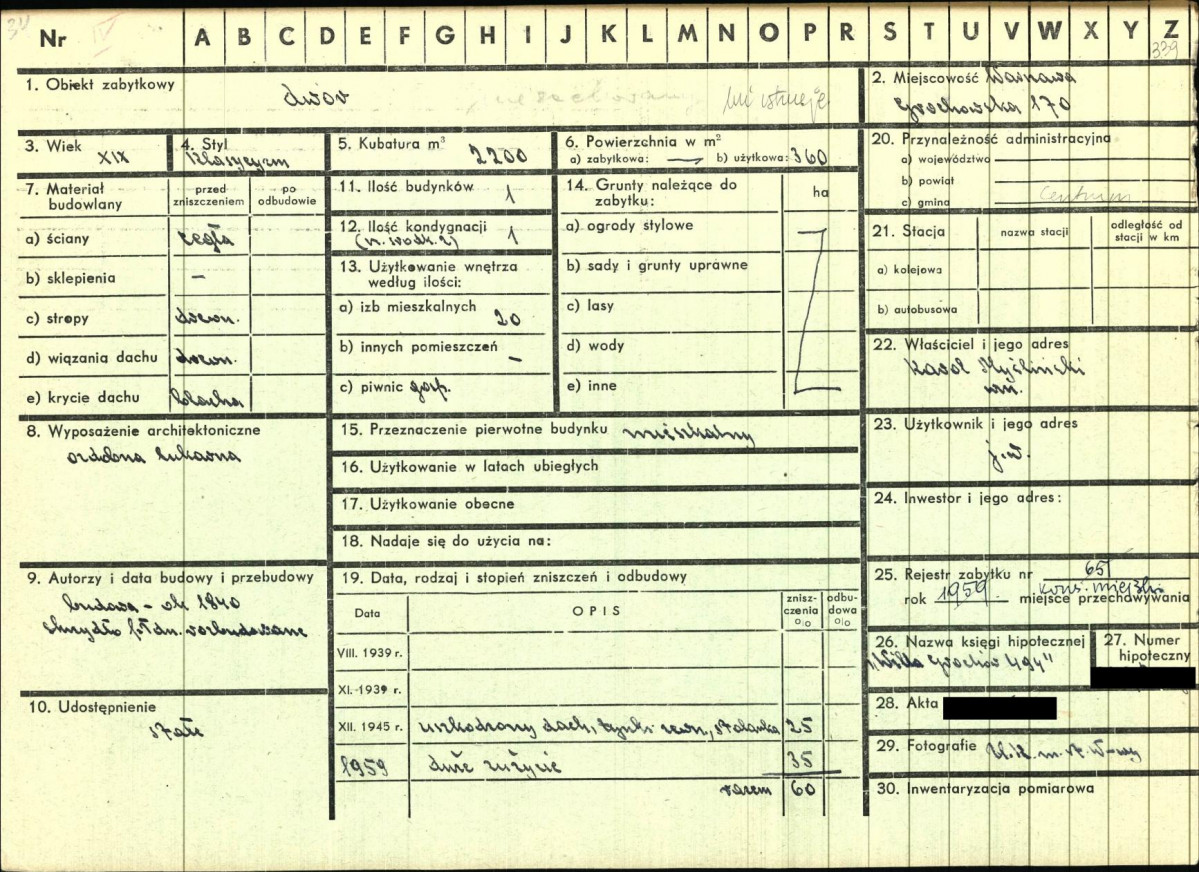 Nr IV A B C D E F G H I J K L M N O P R S T U V W X Y Z
339
1. Obiekt zabytkowy
dwór
nie istnieje
2. Miejscowość Warszawa
Grochowska 170
3. Wiek
XIX
4. Styl
klasycyzm
5. Kubatura m³
2200
6. Powierzchnia w m²
a) zabytkowa: — b) użytkowa: 360
20. Przynależność administracyjna
a) województwo
b) powiat
c) gmina
Centrum
7. Materiał budowlany
przed zniszczeniem
po odbudowie
a) ściany cegła
b) sklepienia –
c) stropy drewn.
d) wiązania dachu drewn.
e) krycie dachu blacha
11. Ilość budynków 1
12. Ilość kondygnacji 1
13. Użytkowanie wnętrza
według ilości:
a) izb mieszkalnych
20
b) innych pomieszczeń –
c) piwnic gosp.
14. Grunty należące do
zabytku:
ha
a) ogrody stylowe
b) sady i grunty uprawne
c) lasy
d) wody
e) inne
21. Stacja
nazwa stacji
odległość od
stacji w km
a) kolejowa
b) autobusowa
22. Właściciel i jego adres
Karol Myśliński
8. Wyposażenie architektoniczne
ozdobna lukarna
15. Przeznaczenie pierwotne budynku mieszkalny
16. Użytkowanie w latach ubiegłych
17. Użytkowanie obecne
18. Nadaje się do użycia na:
23. Użytkownik i jego adres
j.w.
24. Inwestor i jego adres:
9. Autorzy i data budowy i przebudowy
budowa – ok 1840
skrzydło płdn. rozbudowane
19. Data, rodzaj i stopień zniszczeń i odbudowy
Data
OPIS
znisz-
czenia
%
odbu-
dowa
%
VIII. 1939 r.
XI. 1939 r.
XII. 1945 r. uszkodzony dach, tynki zewn., stolarka 25
1959 duże zużycie 35
razem 60
25. Rejestr zabytku nr 65
rok 1959 miejsce przechowywania
kons. miejski
26. Nazwa księgi hipotecznej
"Willa Grochów 494"
27. Numer
hipoteczny
10. Udostępnienie
stałe
28. Akta
29. Fotografie U.K.m.st. W-wy
30. Inwentaryzacja pomiarowa